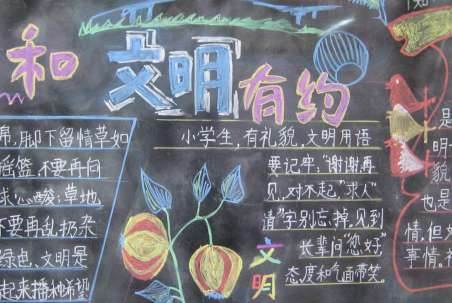 和 文明 有约
帚,脚下留情草如
摇篮,不要再问
球心酸;草地
不要再乱扔杂
绿色,文明是
起来播种希望
小学生,有礼貌,文明用语
要记牢;"谢谢再
见,对不起,"求人"
请"字别忘掉,见到
长辈问"您好"
态度和气面带笑.
文明
是
明
貌
也是
情,但
事情.